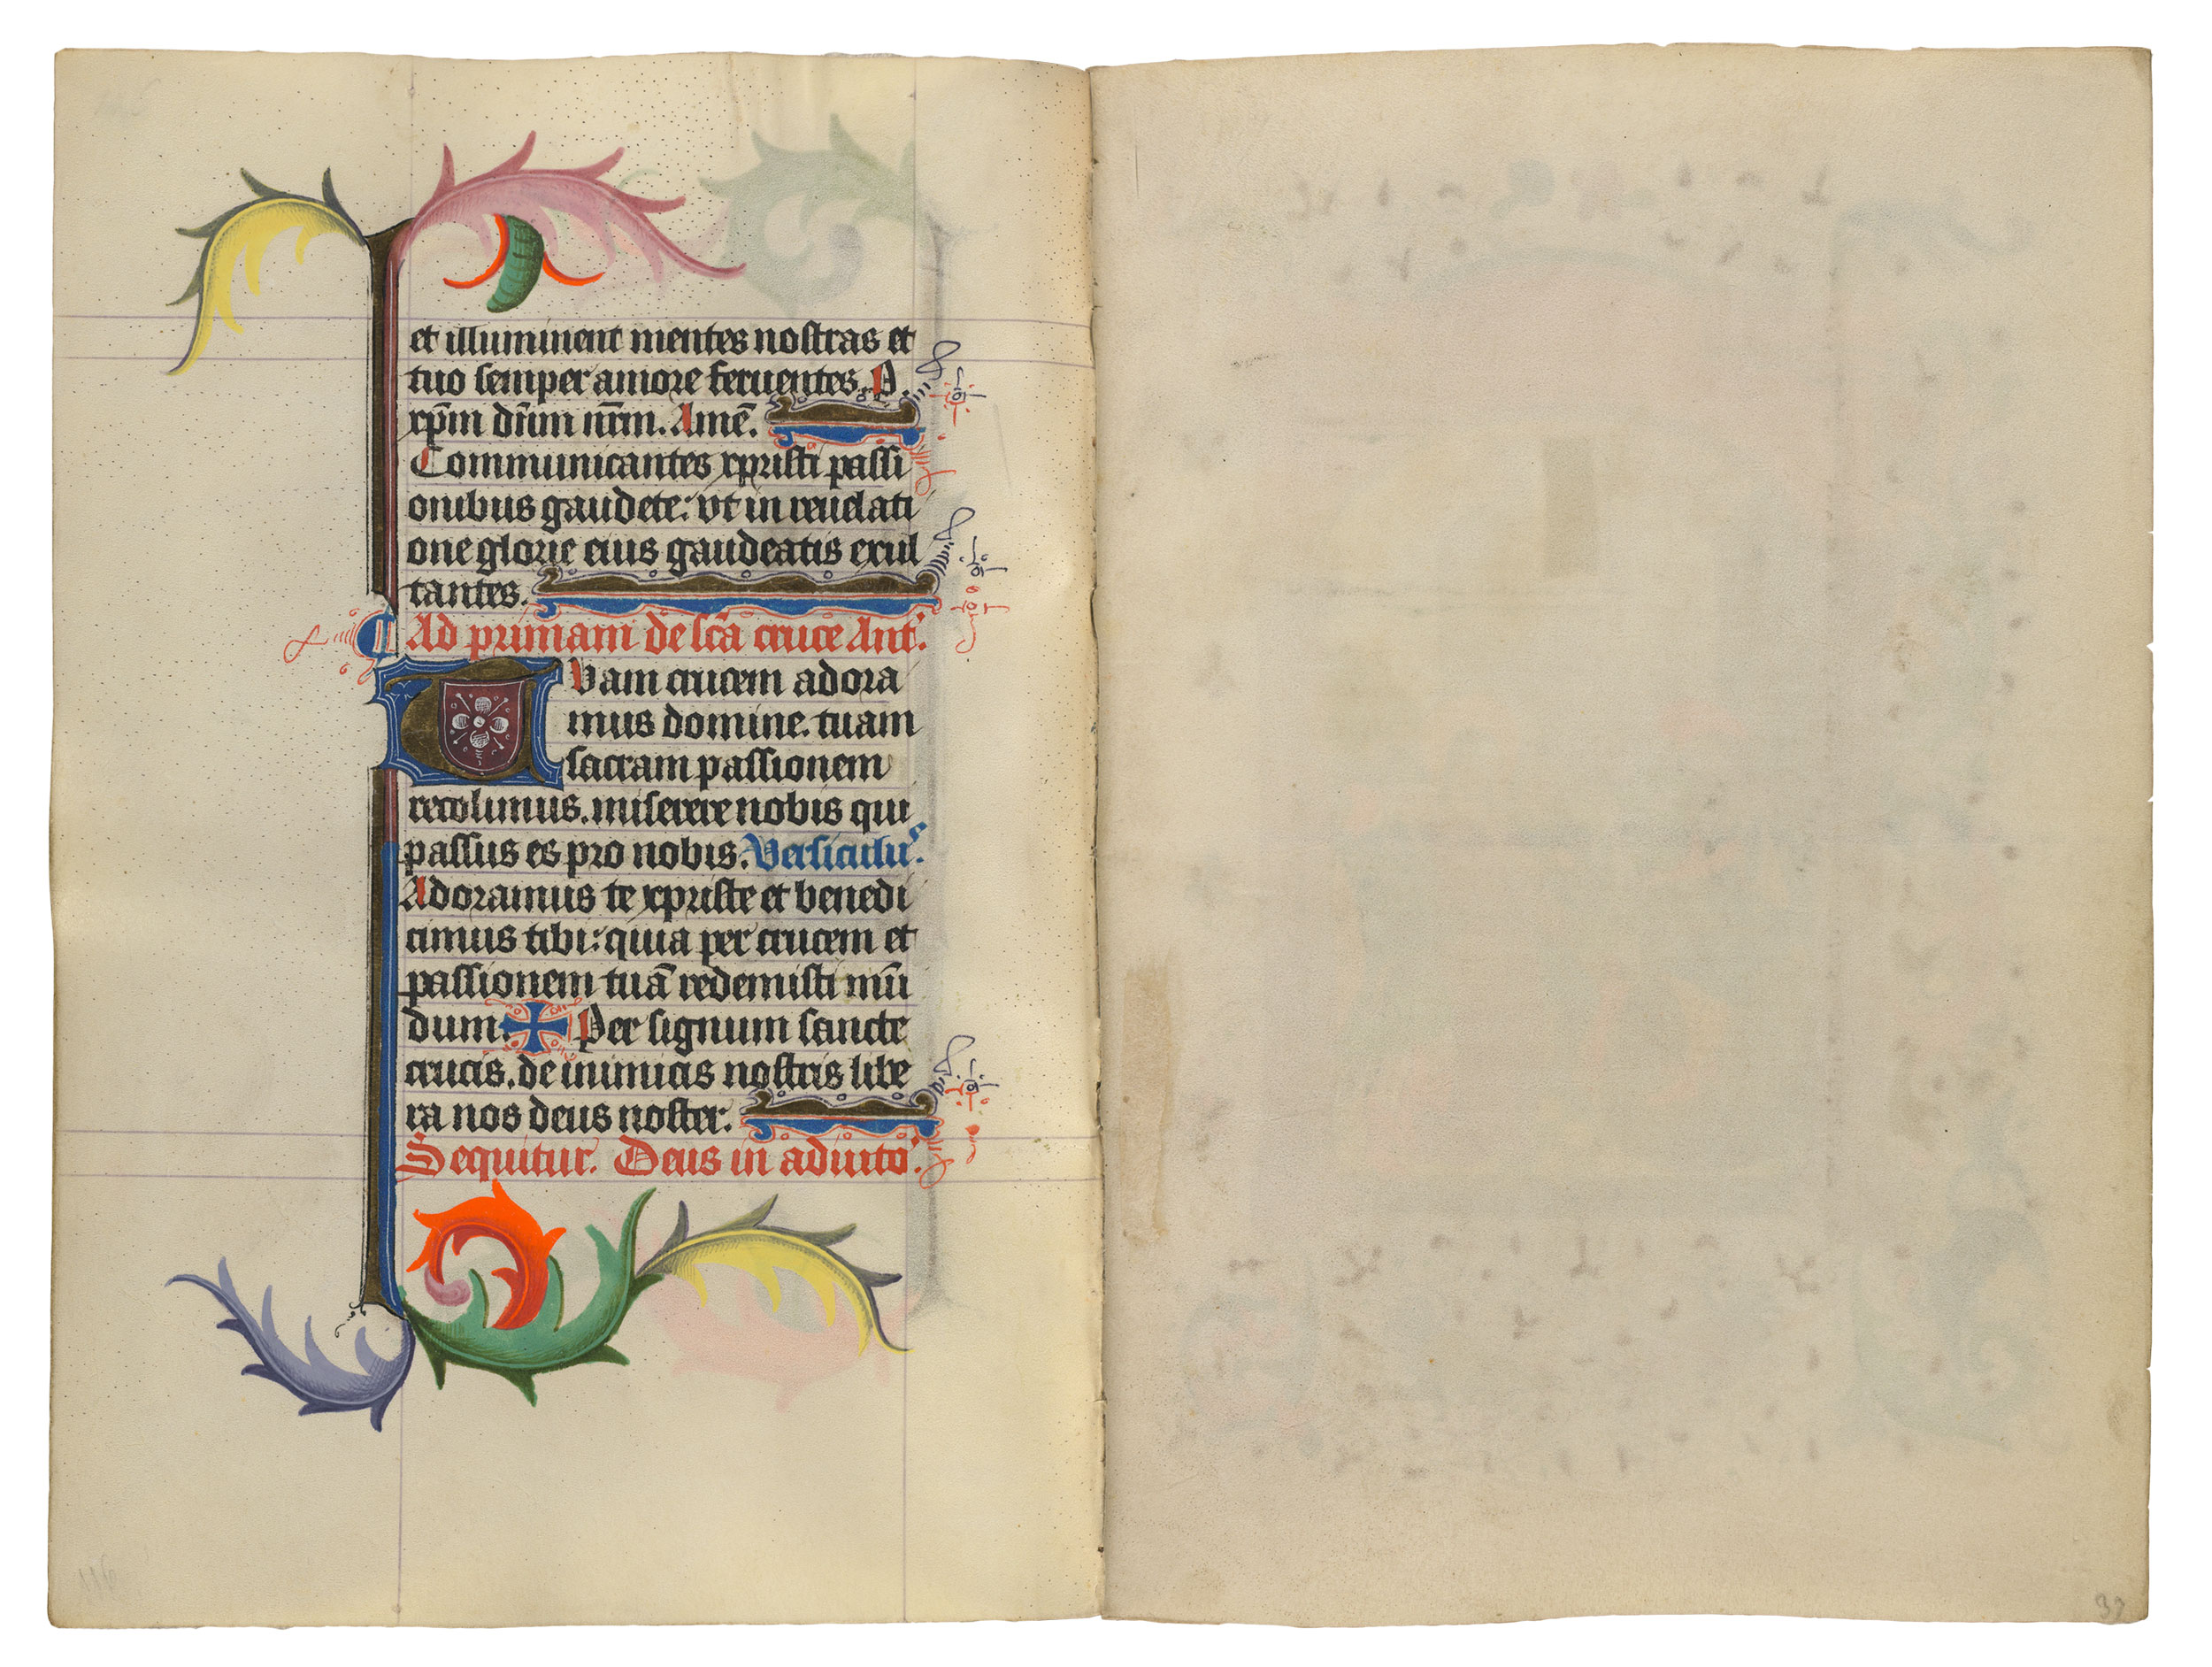 et illuminent mentes nostras et
tuo semper amore feruentes. P
xpm dnm nrm. Ame.
Communicantes xpristi passi
onibus gaudete: vt in reuelati
one glorie eius gaudeatis exul
tantes.
Ad primam de sca cruce Ant.
Tvam crucem adora
mus domine. tuam
sacram passionem
recolimus. miserere nobis qui
passus es pro nobis. Versiculus.
Adoramus te xpriste et benedi
cimus tibi: quia per crucem et
passionem tuā redemisti mū
dum. Per signum sancte
crucis. de inimicis nostris libe
ra nos deus noster.
Sequitur. Deus in adiuto.
116